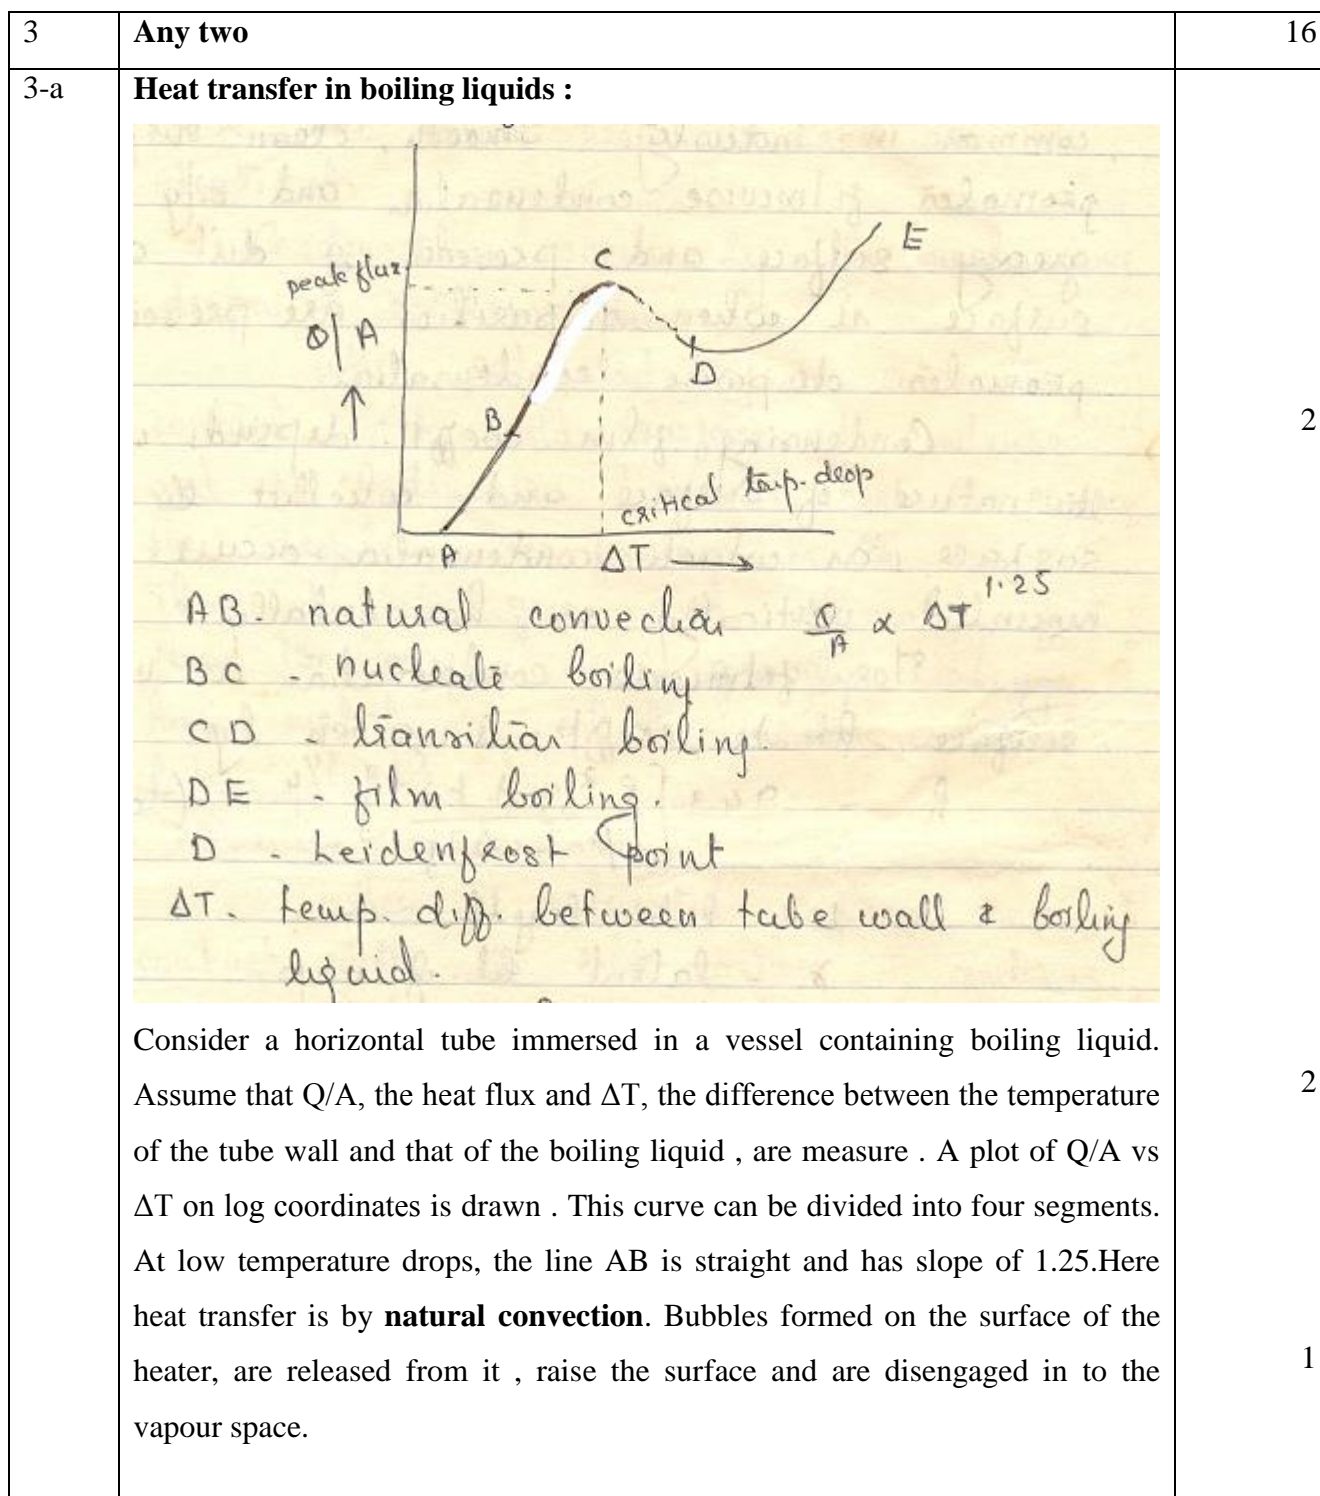 3 Any two 16
3-a Heat transfer in boiling liquids :
C
E
peak flux
Q/A
D
B
critical temp. drop
A ΔT
AB. natural convection Q/A ∝ ΔT^1.25
BC - nucleate boiling
CD - transition boiling.
DE - film boiling.
D - Leidenfrost point
ΔT. temp. diff. between tube wall & boiling
liquid.
2
Consider a horizontal tube immersed in a vessel containing boiling liquid.
Assume that Q/A, the heat flux and ΔT, the difference between the temperature 2
of the tube wall and that of the boiling liquid , are measure . A plot of Q/A vs
ΔT on log coordinates is drawn . This curve can be divided into four segments.
At low temperature drops, the line AB is straight and has slope of 1.25.Here
heat transfer is by natural convection. Bubbles formed on the surface of the
heater, are released from it , raise the surface and are disengaged in to the 1
vapour space.